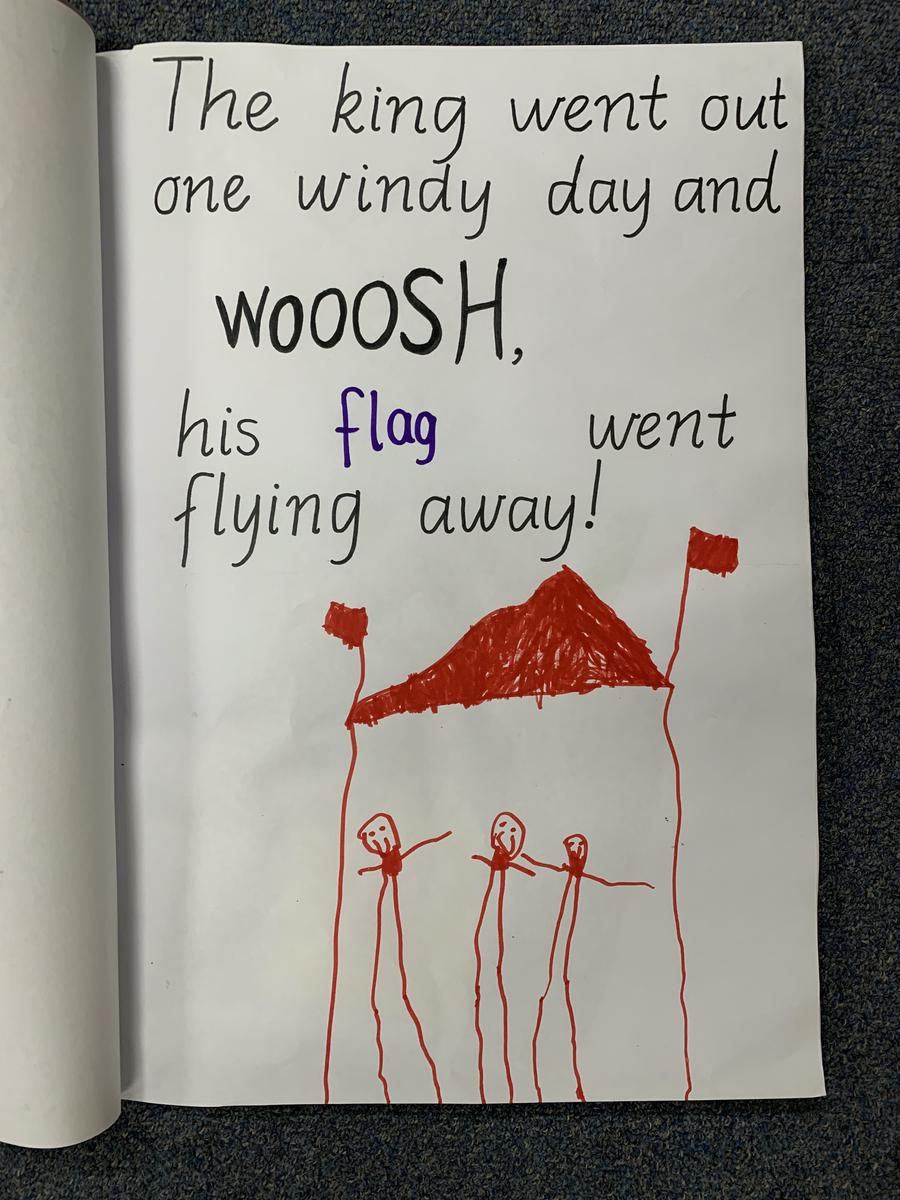 The king went out
one windy day and
WOOOSH,
his flag went
flying away!